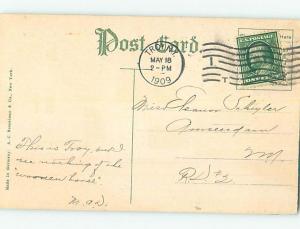 Post Card.
TROY, N.Y.
MAY 18
2-PM
1909
U.S. POSTAGE
Made in Germany. A. C. Bosselman & Co., New York.
Miss Eleanor Schuyler
Amsterdam
N.Y.
R.D. #3
This is Troy, and I
see nothing of the
"wooden horse".
M.A.D.